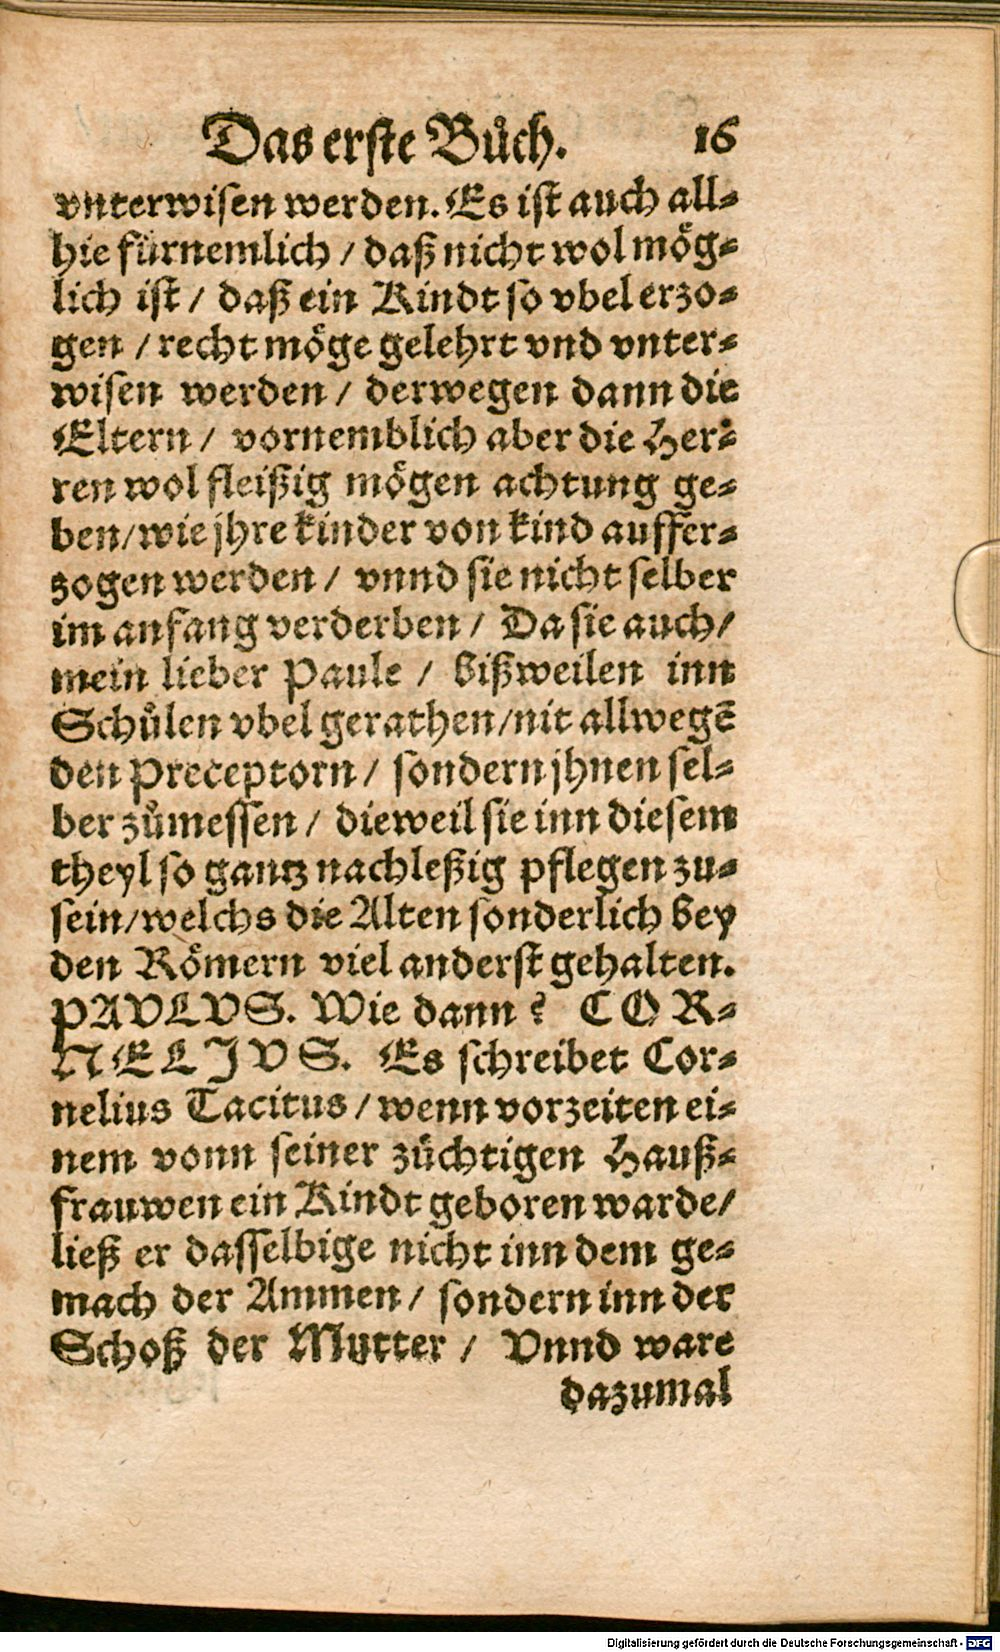 Das erste Bůch. 16
vnterwisen werden. Es ist auch all-
hie fürnemlich / daß nicht wol mög-
lich ist / daß ein Kindt so vbel erzo-
gen / recht möge gelehrt vnd vnter-
wisen werden / derwegen dann die
Eltern / vornemblich aber die Her-
ren wol fleißig mögen achtung ge-
ben / wie jhre kinder von kind auffer-
zogen werden / vnnd sie nicht selber
im anfang verderben / Da sie auch /
mein lieber Paule / bißweilen inn
Schůlen vbel gerathen / nit allwegē
den Preceptorn / sondern jhnen sel-
ber zůmessen / dieweil sie inn diesem
theyl so gantz nachleßig pflegen zu-
sein / welchs die Alten sonderlich bey
den Römern viel anderst gehalten.
PAVLVS. Wie dann? COR-
NELJVS. Es schreibet Cor-
nelius Tacitus / wenn vorzeiten ei-
nem vonn seiner züchtigen Hauß-
frauwen ein Kindt geboren warde /
ließ er dasselbige nicht inn dem ge-
mach der Ammen / sondern inn der
Schoß der Mutter / Vnnd ware
dazumal
Digitalisierung gefördert durch die Deutsche Forschungsgemeinschaft - DFG